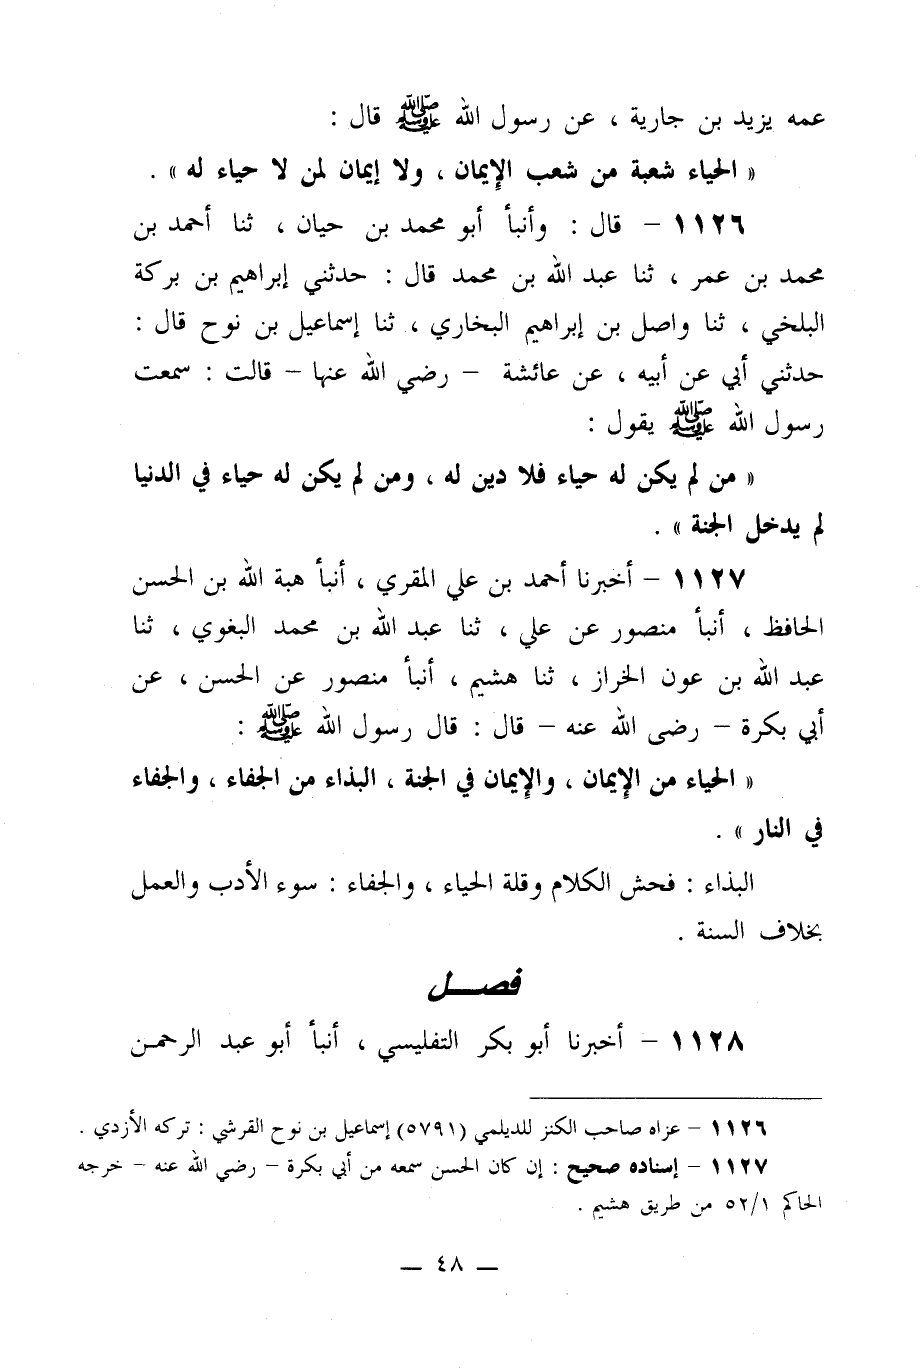 عمه يزيد بن جارية ، عن رسول الله ﷺ قال :
« الحياء شعبة من شعب الإيمان ، ولا إيمان لمن لا حياء له » .
١١٢٦ – قال : وأنبأ أبو محمد بن حيان ، ثنا أحمد بن
محمد بن عمر ، ثنا عبد الله بن محمد قال : حدثني إبراهيم بن بركة
البلخي ، ثنا واصل بن إبراهيم البخاري ، ثنا إسماعيل بن نوح قال :
حدثني أبي عن أبيه ، عن عائشة – رضي الله عنها – قالت : سمعت
رسول الله ﷺ يقول :
« من لم يكن له حياء فلا دين له ، ومن لم يكن له حياء في الدنيا
لم يدخل الجنة » .
١١٢٧ – أخبرنا أحمد بن علي المقري ، أنبأ هبة الله بن الحسن
الحافظ ، أنبأ منصور عن علي ، ثنا عبد الله بن محمد البغوي ، ثنا
عبد الله بن عون الخراز ، ثنا هشيم ، أنبأ منصور عن الحسن ، عن
أبي بكرة – رضى الله عنه – قال : قال رسول الله ﷺ :
« الحياء من الإيمان ، والإيمان في الجنة ، البذاء من الجفاء ، والجفاء
في النار » .
البذاء : فحش الكلام وقلة الحياء ، والجفاء : سوء الأدب والعمل
بخلاف السنة .
فصــل
١١٢٨ – أخبرنا أبو بكر التفليسي ، أنبأ أبو عبد الرحمـن
١١٢٦ – عزاه صاحب الكنز للديلمي (٥٧٩١) إسماعيل بن نوح القرشي : تركه الأزدي .
١١٢٧ – إسناده صحيح : إن كان الحسن سمعه من أبي بكرة – رضي الله عنه – خرجه
الحاكم ٥٢/١ من طريق هشيم .
— ٤٨ —